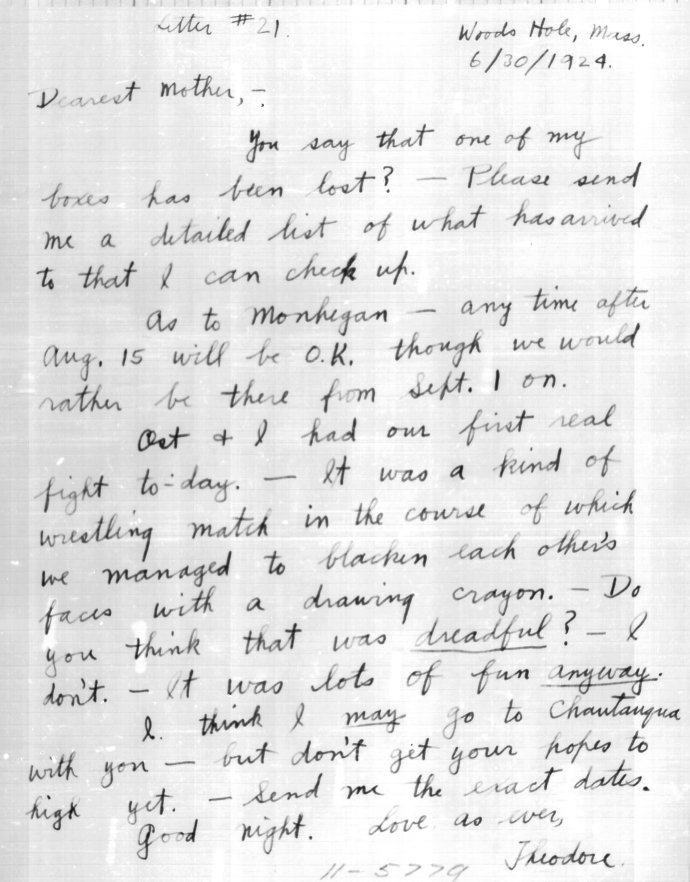 Letter #21.
Woods Hole, Mass.
6/30/1924.
Dearest Mother, -
You say that one of my
boxes has been lost? — Please send
me a detailed list of what has arrived
to that I can check up.
As to Monhegan — any time after
Aug. 15 will be O.K. though we would
rather be there from Sept. 1 on.
Ost + I had our first real
fight to-day. — It was a kind of
wrestling match in the course of which
we managed to blacken each other's
faces with a drawing crayon. — Do
you think that was dreadful? — I
don't. — It was lots of fun anyway.
I think I may go to Chautauqua
with you — but don't get your hopes to
high yet. — Send me the exact dates.
Good night. Love as ever,
Theodore.
11-5779